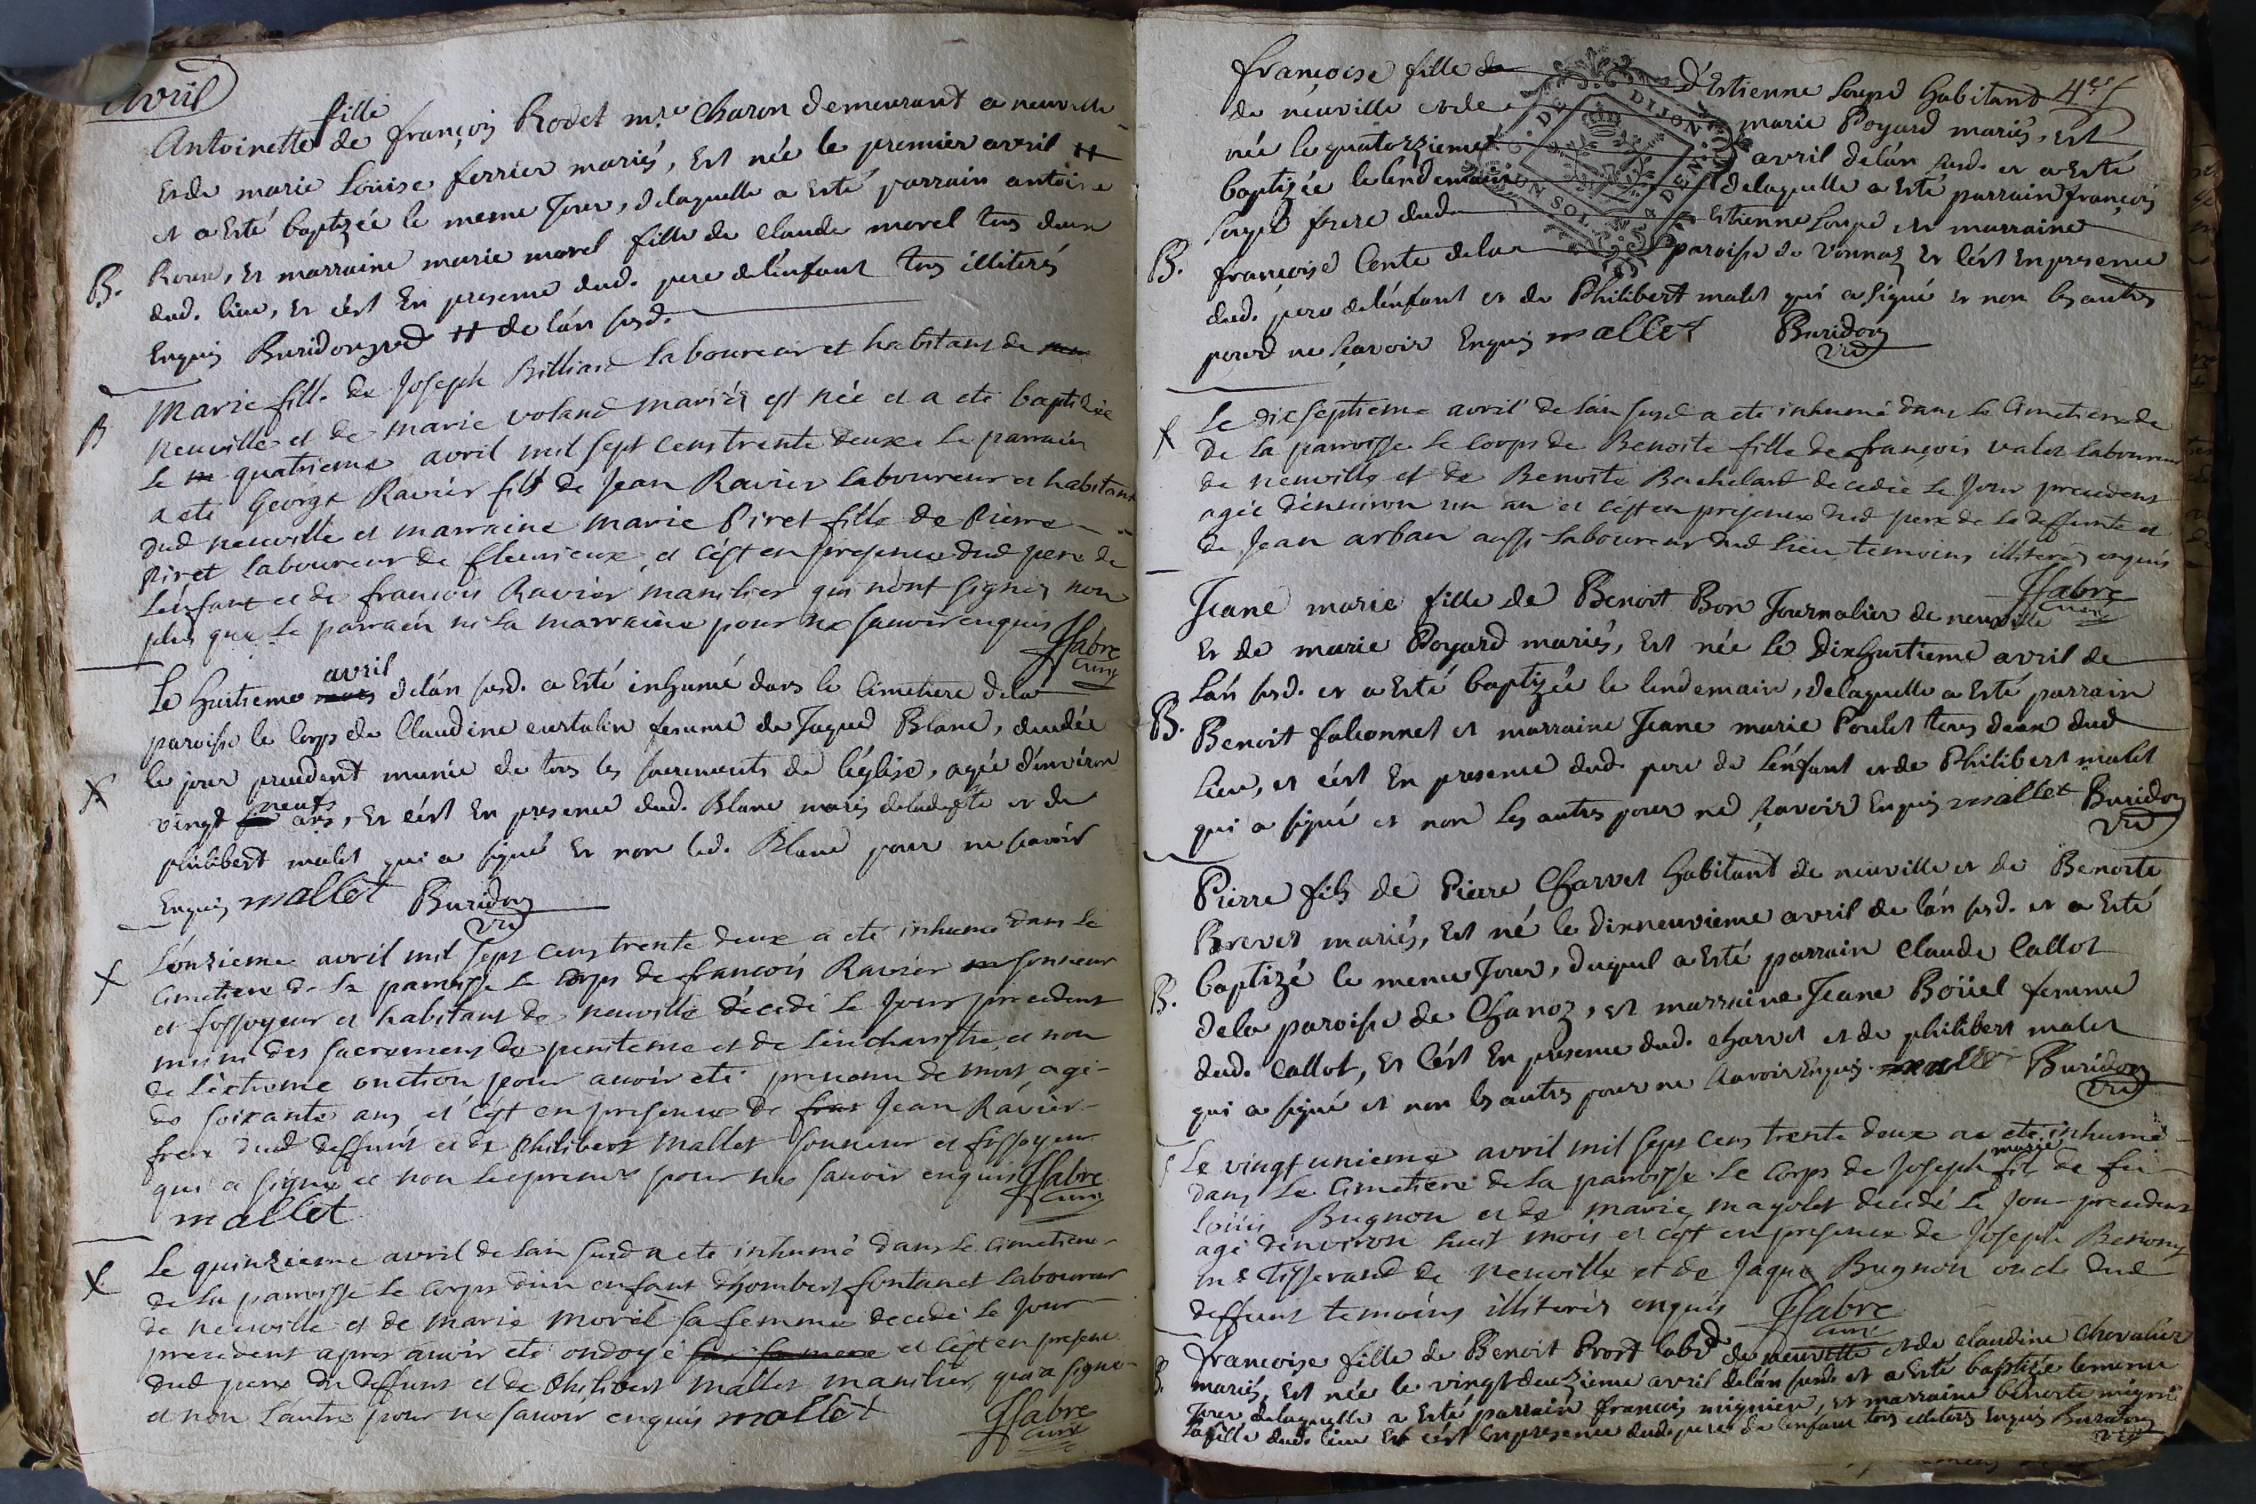 avril
fille
Antoinette de françois Rodet mre Charon demeurant a neuville
et de marie Loüise ferrier mariés, Est née le premier avril #
et a Esté baptizée le meme Jour, delaquelle a Esté parrain antoine
B. Roux, Et marraine marie morel fille de claude morel tous deux
dud. lieu, Et c'est En presence dud. pere de l'enfant tous illiterés
Enquis Buridon vic # de l'án susd.
B Marie fille de Joseph Billiard laboureur et habitant de
neuville et de marie voland mariés est née et a ete baptizée
le m quatrieme avril mil sept cens trente deux le parrain
a ete George Ravier fils de Jean Ravier laboureur et habitant
dud neuville et marraine marie Piret fille de Pierre
Piret laboureur de fleurieux et c'est en presence dud pere de
l'enfant et de francois Ravier manilier qui n'ont signés non
plus que le parrain ni la marraine pour ne sauoir enquis
Jfabre
curé
avril
Le huitieme mars de lán susd. a Esté inhumé dans le Cimetiere de la
paroisse le Corps de Claudine curtalin femme de Jaque Blanc, decedée
X le jour precedent munie de tous les sacrements de l'église, agée d'environ
neufs
vingt ans, Et c'est En presence dud. Blanc maris de lad. et de
philibert malet qui a signé Et non led. Blanc pour ne scavoir
Enquis mallet Buridon
vic
X L'onzieme avril mil sept cens trente deux a ete inhumé dans le
cimetiere de la paroisse le corps de francois Ravier m sonneur
et fossoyeur et habitant de neuville décedé le Jour precedent
muni des sacremens de penitence et de l'eucharistie et non
de l'extreme onction pour auoir eté preuenu de mort agé
de soixante ans et c'est en presence de frer Jean Ravier
frere dud deffunt et de philibert mallet sonneur et fossoyeur
qui a signé et non le premier pour ne sauoir enquis Jfabre
mallet curé
X Le quinzieme avril de l'an susd a ete inhumé dans le cimetiere
de la paroisse le corps d'un enfant d'hombert fontanet laboureur
de neuville et de marie morel sa femme decedé le Jour
precedent apres auoir ete ondoyé par sa mere et c'est en presence
dud pere du deffunt et de philibert mallet manilier qui a signé
et non l'autre pour ne sauoir enquis mallet Jfabre
curé
françoise fille de d'Estienne Loupe habitant 4es
de neuville et de marie Poyard mariés, Est
née le quatorzieme avril de lán susd. et a Esté
baptizée le lendemain de laquelle a Esté parrain françois
Loupe frere dud Estienne Loupe et marraine
B. françoise Conte de la paroisse de vonnaz Et c'est En presence
dud. pere de l'enfant et de Philibert malet qui a signé et non les autres
pour ne sçavoir Enquis mallet Buridon
vic
DE DIJON
UN SOL
X Le dicseptieme avril de l'an susd a ete inhumé dans le Cimetiere de
De la paroisse le corps de Benoite fille de françois valet laboureur
de neuville et de Benoite Bachelard decedée le Jour precedent
agée d'enuiron un an et c'est en presence dud pere de la deffunte et
de Jean arban aussi laboureur dud lieu temoins illiterés enquis
Jfabre
curé
Jeane marie fille de Benoit Bon Journalier de neuville
Et de marie Poyard mariés, Est née le Dixhuitieme avril de
lán susd. et a Esté baptizée le lendemain, delaquelle a Esté parrain
B. Benoit falconnet et marraine Jeane marie Poulet tous deux dud
lieu, et c'est En presence dud. pere de l'énfant et de Philibert malet
qui a signé et non les autres pour ne sçavoir Enquis mallet Buridon
vic
Pierre fils de Pierre Charvet habitant de neuville et de Benoite
Brevet mariés, Est né le dixneuvieme avril de lán susd. et a Esté
B. baptizé le meme Jour, duquel a Esté parrain claude Callot
dela paroisse de Chanoz, et marraine Jeane Boüel femme
dud. Callot, Et C'est En presence dud. charvet et de philibert malet
qui a signé et non les autres pour ne sçavoir Enquis mallet Buridon
vic
Le vingt unieme avril mil sept cens trente deux a ete inhumé
dans le cimetiere de la paroisse le corps de Joseph marie fils de feu
Loüis Bugnon et de marie mayolet decedé le jour precedent
agé d'environ huit mois et c'est en presence de Joseph Benony
mre Tisserand de neuville et de Jaque Bugnon oncle dud
deffunt temoins illiterés enquis Jfabre
curé
B. francoise fille de Benoit Prost labr de neuville et de claudine Chevalier
mariés, Est née le vingt deuzieme avril de lán susd. et a Esté baptizée le meme
Jour delaquelle a Esté parrain françois mignier, et marraine benoite mignié
sa fille dud. lieu Et c'est En presence dud. pere de l'enfant tous illiterés Enquis Buridon
vic